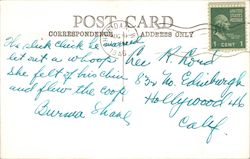 POST CARD
CORRESPONDENCE
ADDRESS ONLY
1 CENT 1
The slick chick he married
let out a whoop
She felt of his chin
and flew the coop
Burma Shave
Geo R. Pond
832 No. Edinburgh
Hollywood 46
Calif.